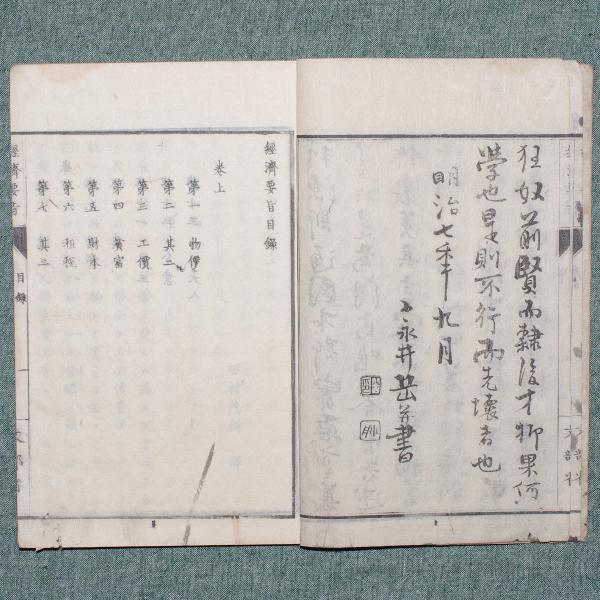 狂奴前賢而隷後才抑果何
學也是則不行而先壞者也
明治七年九月
永井 書
經濟要旨目録
卷上
第一 物價
第二 其二
第三 工價
第四 貧富
第五 財本
第六 租税
第七 其三
經濟要旨
目録
一
文部省